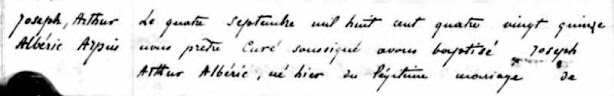 Joseph, Arthur
Albéric Arpin
Le quatre septembre mil huit cent quatre vingt quinze
nous prêtre Curé soussigné avons baptisé Joseph
Arthur Albéric, né hier du légitime mariage de